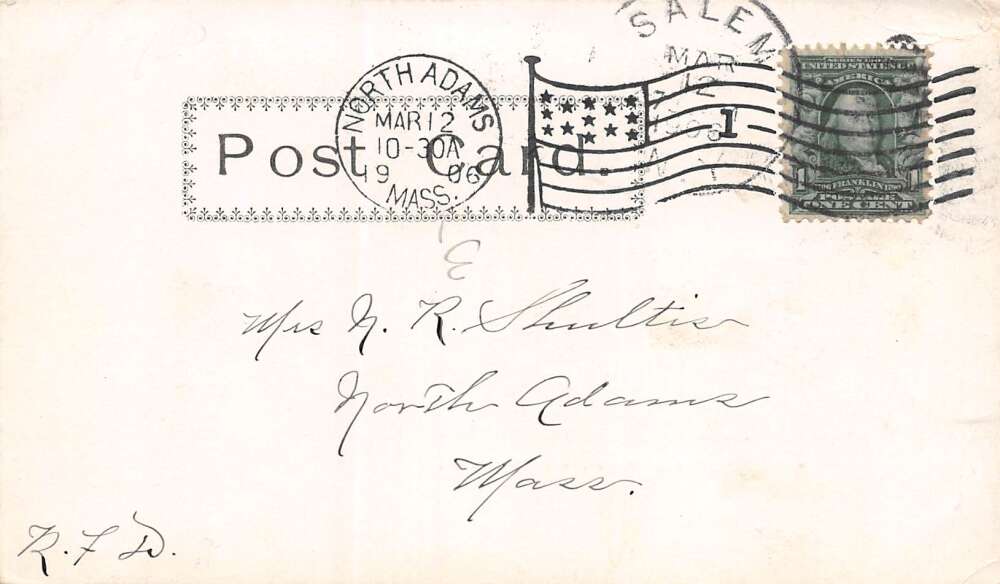 SALEM
MAR
12
NORTH ADAMS
MAR 12
10-30A
19 06
MASS.
1
Post Card.
SERIES 1902
UNITED STATES OF
AMERICA
1706 FRANKLIN 1790
1 POSTAGE 1
ONE CENT
E
Mrs N. R. Shultis
North Adams
Mass.
R. F. D.